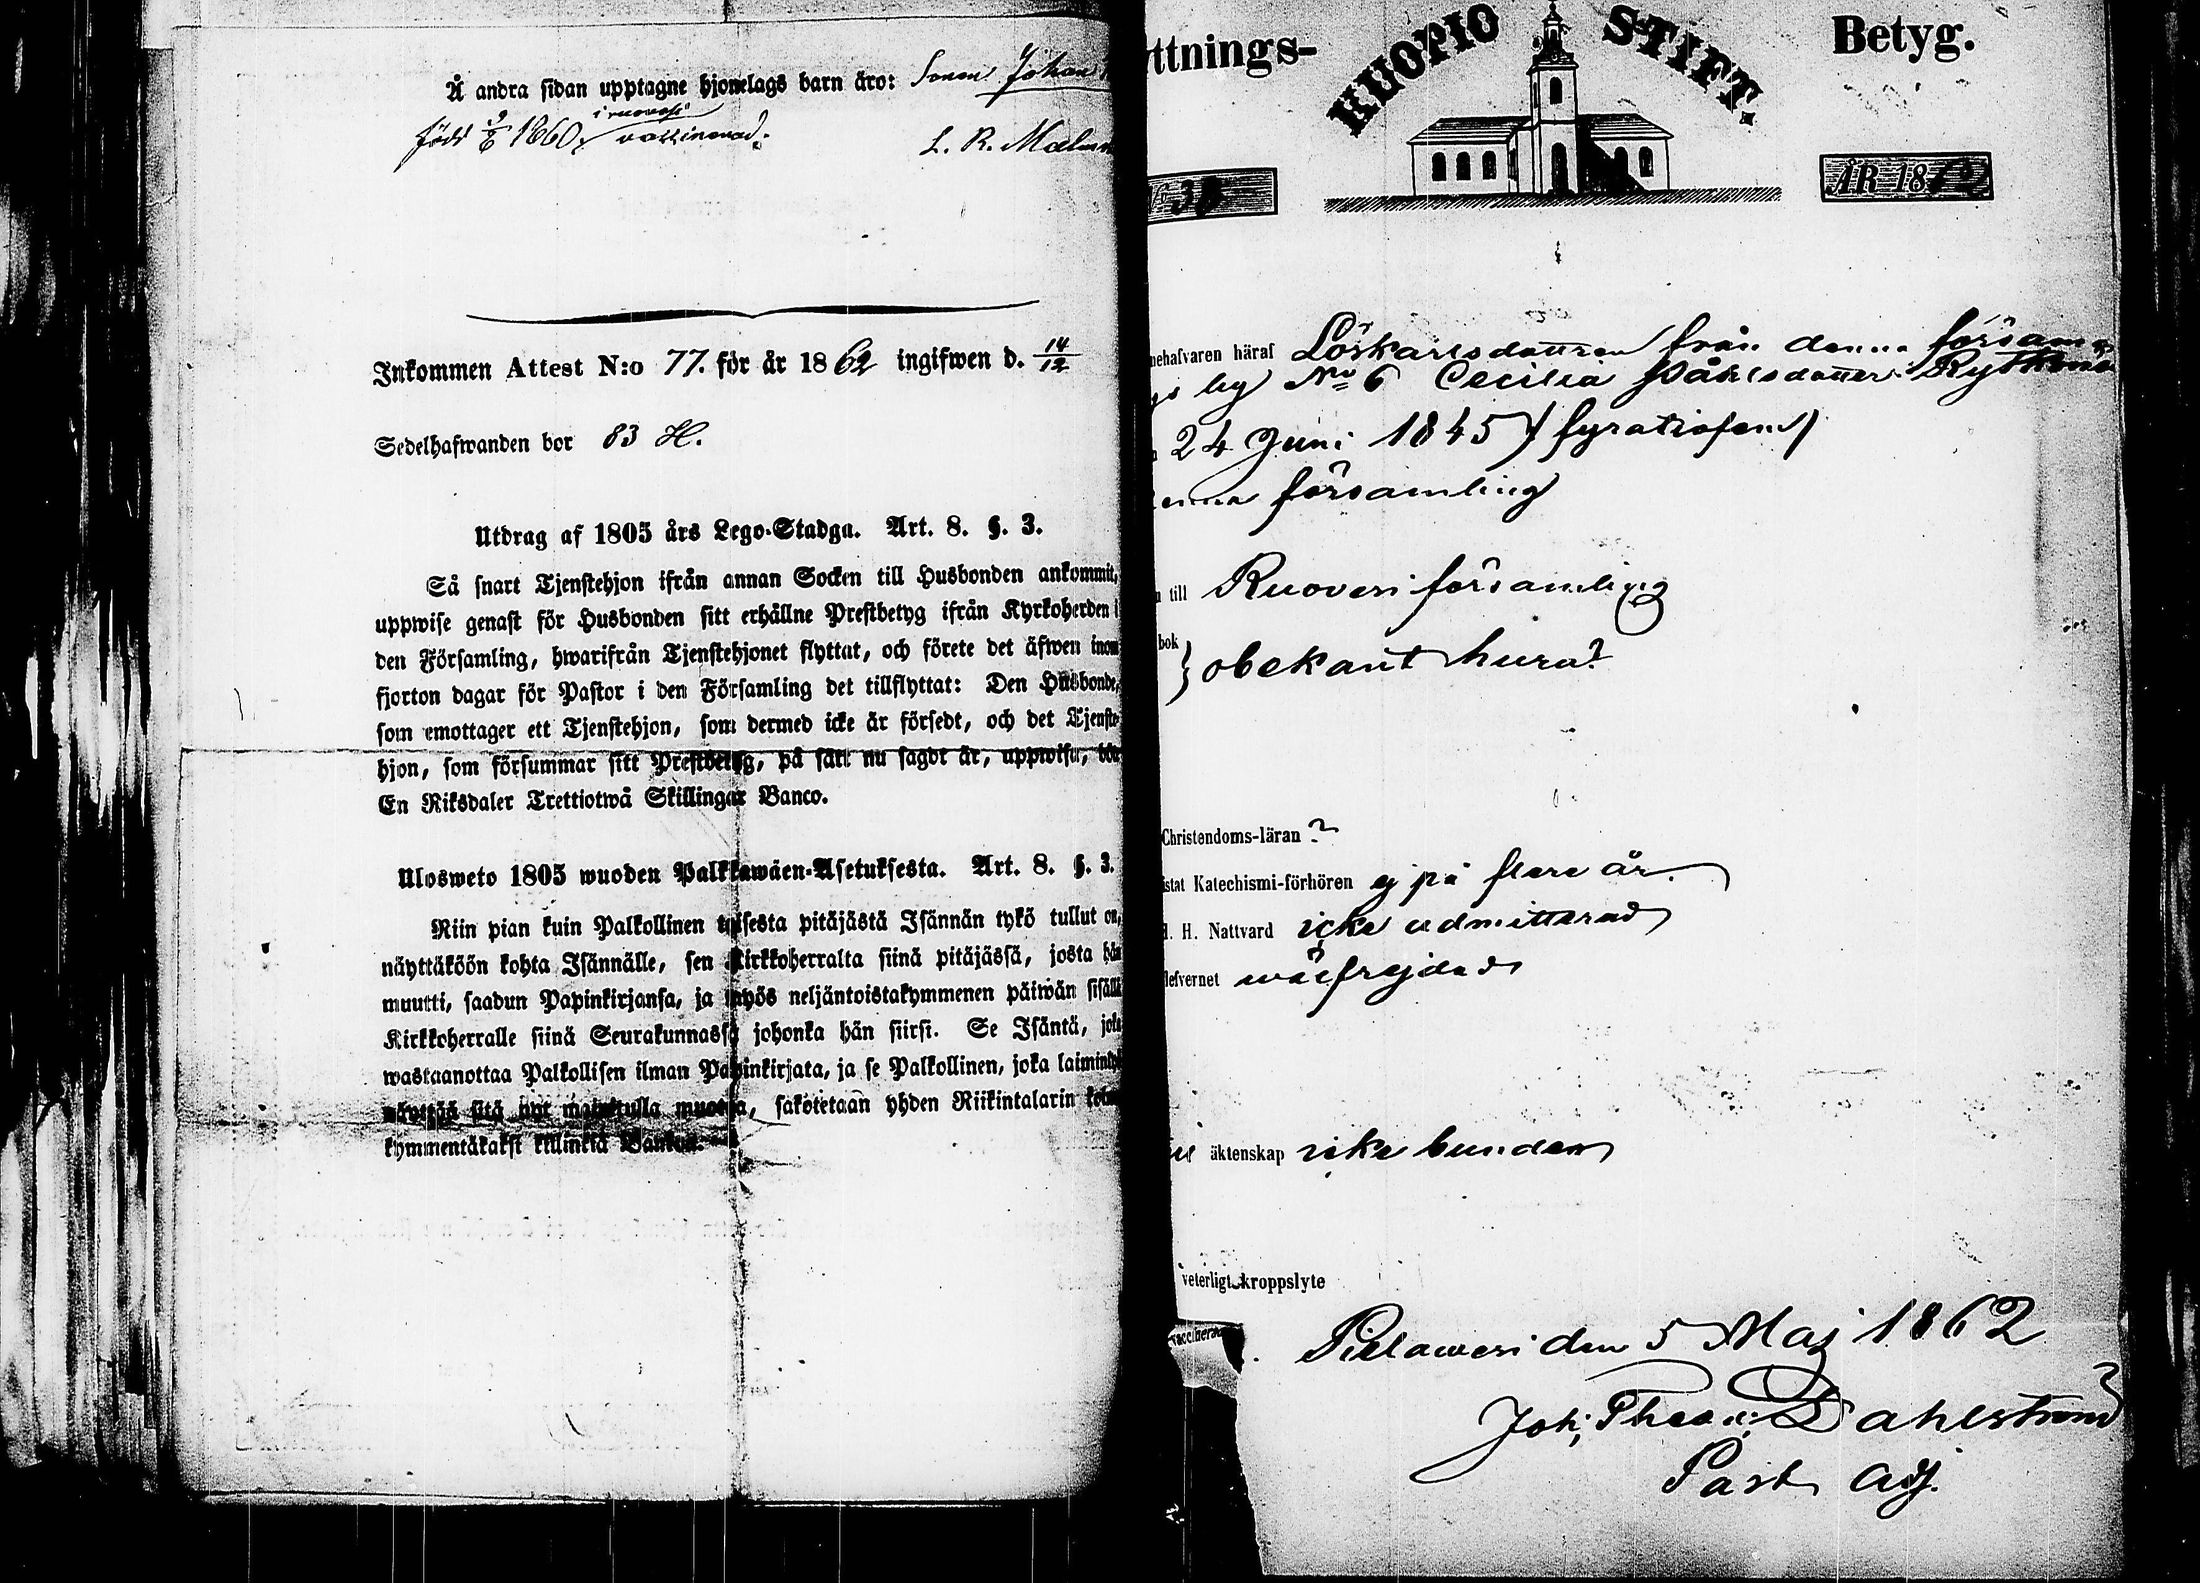 Å andra sidan upptagne hjonelags barn äro: Sonen Johan
född 9/6 1860, i ruovesi vaccinerad.
L. R. Malm
Inkommen Attest N:o 77. för år 1862 ingifwen d. 14/12
Sedelhafwanden bor 83 H.
Utdrag af 1805 års Lego-Stadga. Art. 8. §. 3.
Så snart Tjenstehjon ifrån annan Socken till Husbonden ankommit,
uppwise genast för Husbonden sitt erhållne Prestbetyg ifrån Kyrkoherden i
den Församling, hwarifrån Tjenstehjonet flyttat, och förete det äfwen inom
fjorton dagar för Pastor i den Församling det tillflyttat: Den Husbonde,
som emottager ett Tjenstehjon, som dermed icke är försedt, och det Tjenste-
hjon, som försummar sitt Prestbetyg, på sätt nu sagdt är, uppwisa, böte
En Riksdaler Trettiotwå Skillingar Banco.
Ulosweto 1805 wuoden Palkkawäen-Asetuksesta. Art. 8. §. 3.
Niin pian kuin Palkollinen toisesta pitäjästä Isännän tykö tullut on,
näyttäköön kohta Isännälle, sen Kirkkoherralta siinä pitäjässä, josta hän
muutti, saadun Papinkirjansa, ja myös neljäntoistakymmenen päiwän sisällä
Kirkkoherralle siinä Seurakunnassa johonka hän siirsi. Se Isäntä, joka
wastaanottaa Palkollisen ilman Papinkirjata, ja se Palkollinen, joka laiminlyö
näyttää sitä nyt mainitulla muotoa, sakotetaan yhden Riikintalarin kolme
kymmentäkaksi killinkiä Bankoa.
yttnings- KUOPIO STIFT. Betyg.
ÅR 1862
nehafvaren häraf Löskarlsdottren från denna försam
by No 6 Cecilia Påhlsdotter Rytkönen
24 Juni 1845 / fyratiofem /
enna församling
n till Ruovesi församling
bok } obekant huru?
Christendoms-läran ?
istat Katechismi-förhören ej på flere år.
H. H. Nattvard icke admitterad
lefvernet wälfrejdad
äktenskap icke bunden
veterligt kroppslyte
vaccinerad
Pielawesi den 5 Maj 1862
Joh. Theod. Dahlström
Past. Adj.